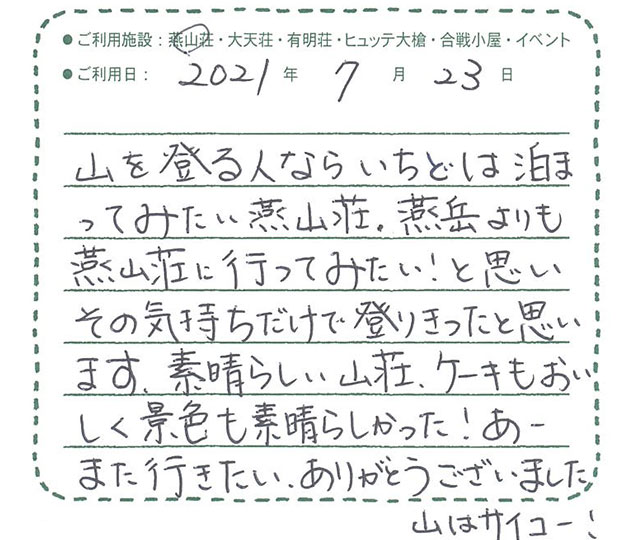 ●ご利用施設：燕山荘・大天荘・有明荘・ヒュッテ大槍・合戦小屋・イベント
●ご利用日： 2021 年 7 月 23 日
山を登る人ならいちどは泊ま
ってみたい燕山荘。燕岳よりも
燕山荘に行ってみたい！と思い
その気持ちだけで登りきったと思い
ます、素晴らしい山荘、ケーキもおい
しく景色も素晴らしかった！あー
また行きたい、ありがとうございました
山はサイコー！